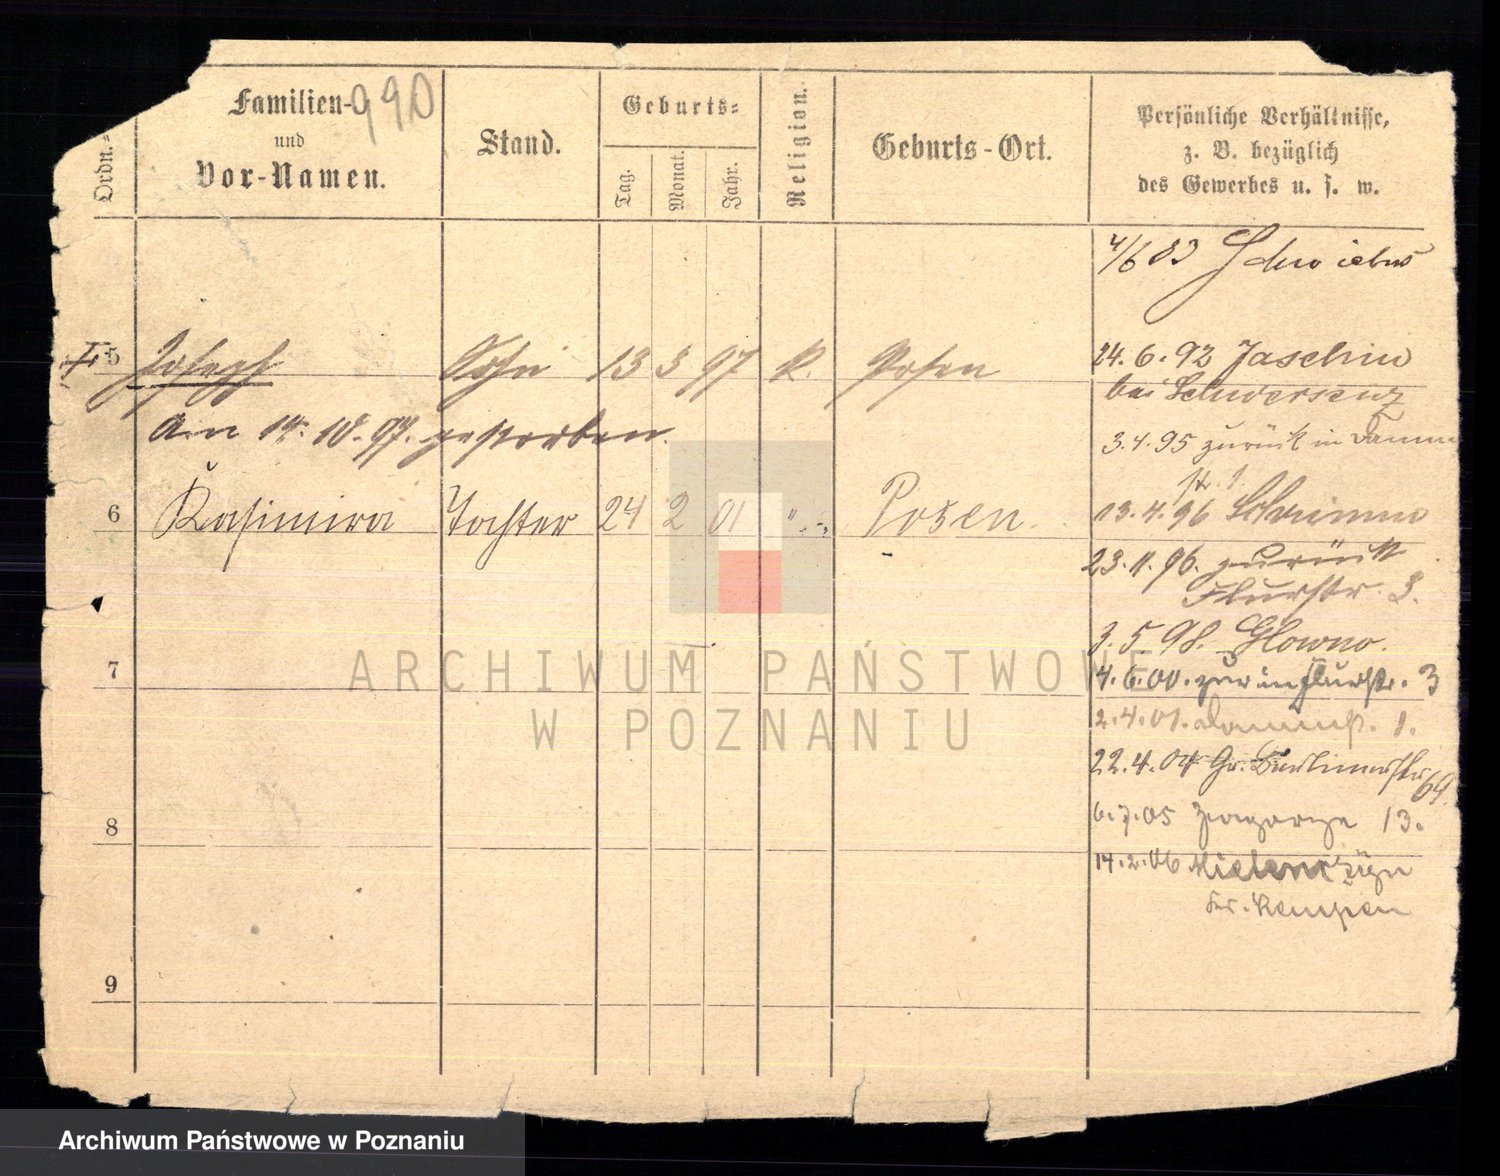 990
Ordn.-
Familien-
und
Vor-Namen.
Stand.
Geburts-
Tag.
Monat.
Jahr.
Religion.
Geburts-Ort.
Persönliche Verhältnisse,
z. B. bezüglich
des Gewerbes u. s. w.
4/6 83 Schwiebus
5 Joseph Sohn 13 3 97 k. Posen
24. 6. 92 Jaschin
bei Schwersenz
am 14. 10. 97. gestorben.
3. 4. 95 zurück in Damm
str. 1.
6 Kasimira Tochter 24 2 01 " Posen.
13. 4. 96 Schrimm
23. 11. 96. zurück
Flurstr. 3.
3. 5. 98. Glowno.
7
4. 6. 00. zur in Flurstr. 3
2. 4. 01. Dammstr. 1.
22. 4. 04 Gr. Berlinerstr. 69.
6. 7. 05 Zwagorze 13.
8
14. 2. 06
Kr. Kempen
9
ARCHIWUM PAŃSTWOWE
W POZNANIU
Archiwum Państwowe w Poznaniu